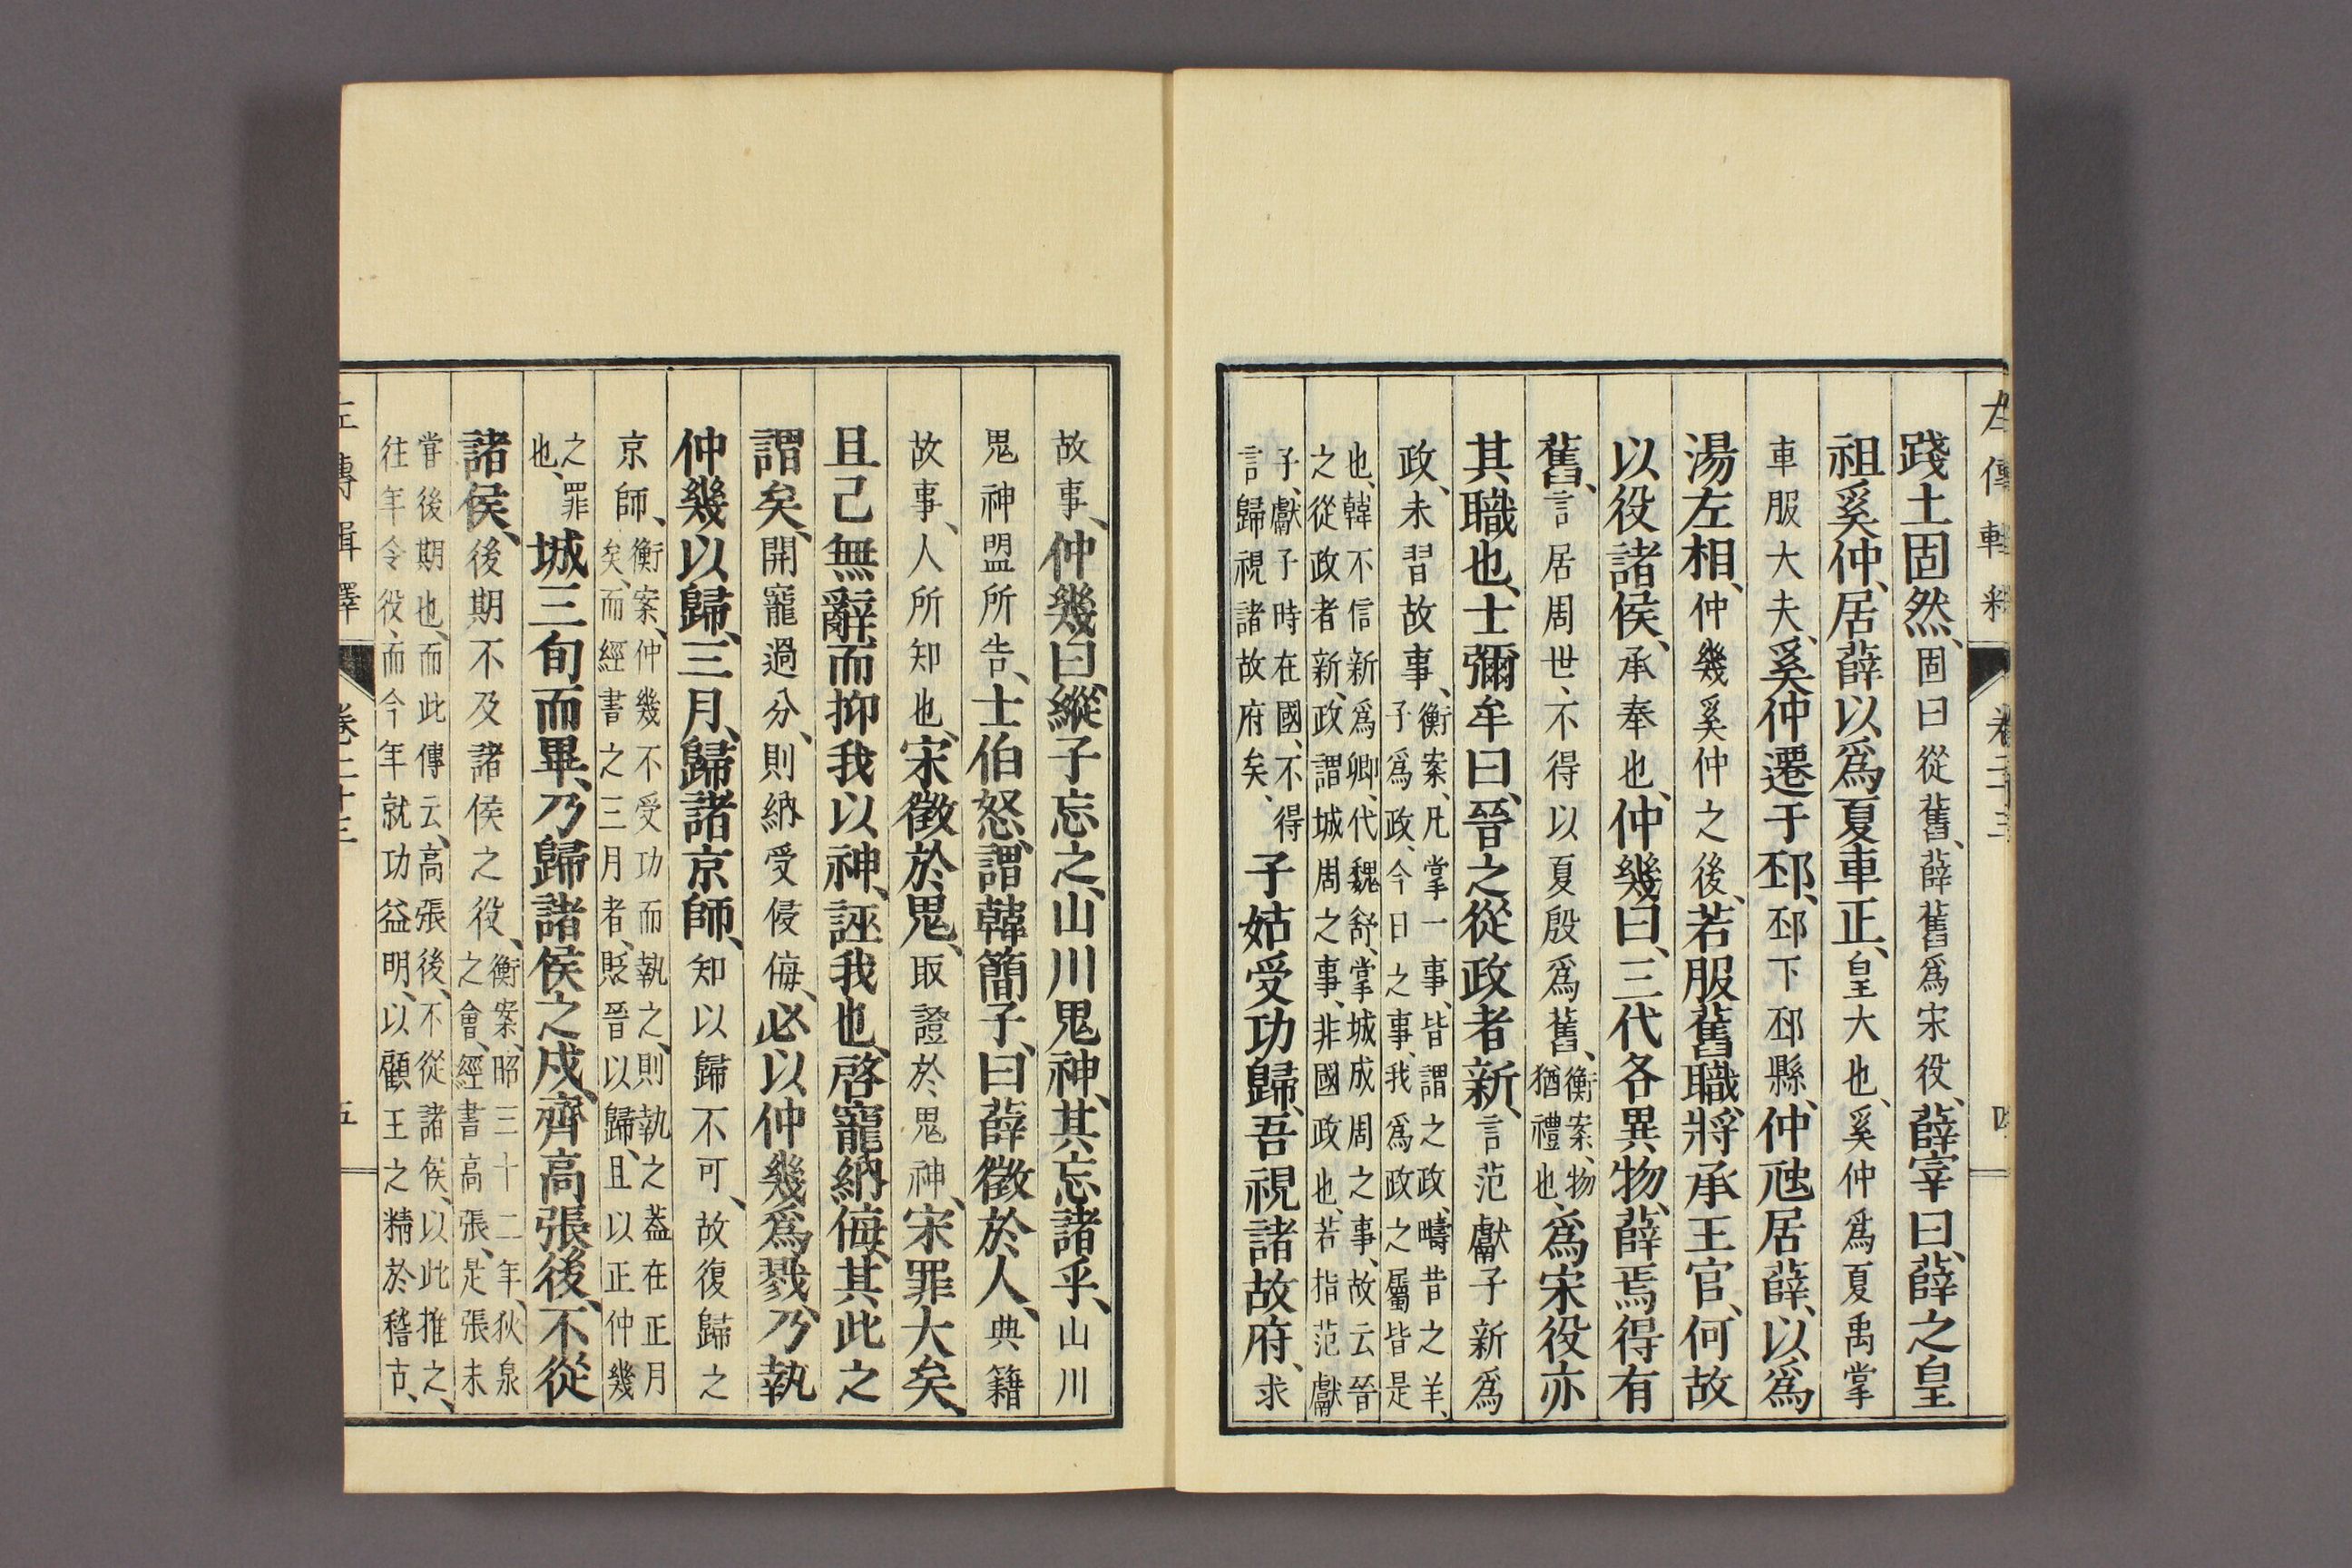 左傳輯釋 卷二十三 四
踐土固然、固曰從舊、薛舊爲宋役、薛宰曰、薛之皇
祖奚仲、居薛以爲夏車正、皇大也、奚仲爲夏禹掌
車服大夫、奚仲遷于邳、邳下邳縣、仲虺居薛、以爲
湯左相、仲幾奚仲之後、若服舊職、將承王官、何故
以役諸侯、承奉也、仲幾曰、三代各異物、薛焉得有
舊、言居周世、不得以夏殷爲舊、衡案、物猶禮也、爲宋役亦
其職也、士彌牟曰、晉之從政者新、言范獻子新爲
政、未習故事、衡案、凡掌一事、皆謂之政、疇昔之羊、子爲政、今日之事、我爲政之屬皆是
也、韓不信新爲卿、代魏舒、掌城成周之事、故云晉之從政者新、政謂城周之事、非國政也、若指范獻
子、獻子時在國、不得言歸視諸故府矣、子姑受功歸、吾視諸故府、求
故事、仲幾曰、縱子忘之、山川鬼神、其忘諸乎、山川
鬼神盟所告、士伯怒、謂韓簡子、曰薛徵於人、典籍
故事、人所知也、宋徵於鬼、取證於鬼神、宋罪大矣、
且己無辭、而抑我以神、誣我也、啓寵納侮、其此之
謂矣、開寵過分、則納受侵侮、必以仲幾爲戮、乃執
仲幾以歸、三月、歸諸京師、知以歸不可、故復歸之
京師、衡案、仲幾不受功而執之、則執之葢在正月矣、而經書之三月者、貶晉以歸、且以正仲幾
之罪也、城三旬而畢、乃歸諸侯之戍、齊高張後、不從
諸侯、後期不及諸侯之役、衡案、昭三十二年、狄泉之會、經書高張、是張未
甞後期也、而此傳云、高張後、不從諸侯、以此推之、往年令役、而今年就功益明、以顧王之精於稽古、
左傳輯釋 卷二十三 五